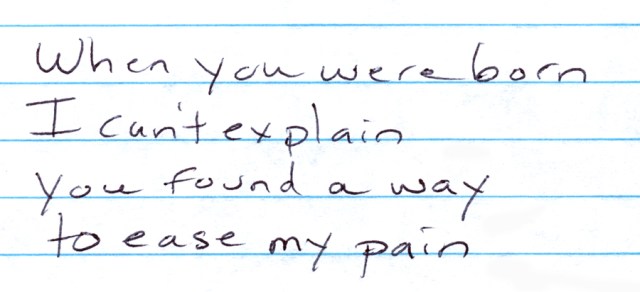 When you were born
I can't explain
you found a way
to ease my pain